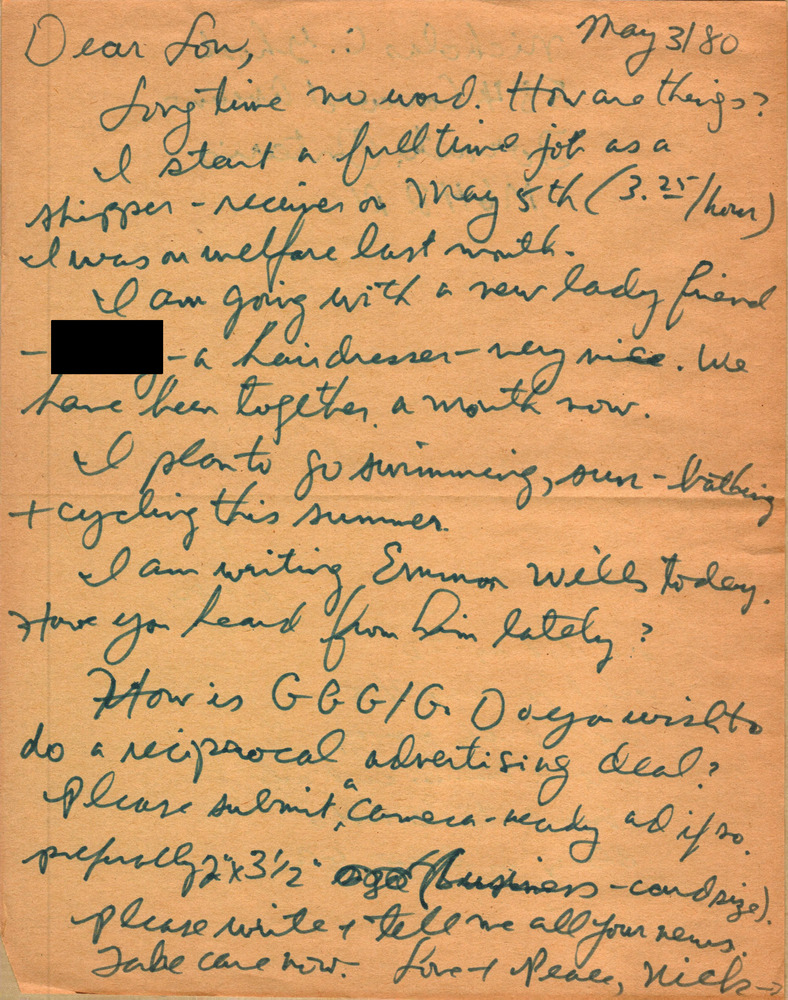 May 3/80
Dear Lou,
Long time no word. How are things?
I start a full time job as a
shipper - receiver on May 5th (3.25/hour)
I was on welfare last month.
I am going with a new lady friend
- - a hairdresser - very nice. We
have been together a month now.
I plan to go swimming, sun-bathing
+ cycling this summer.
I am writing Emmon Wills today.
Have you heard from him lately?
How is GGG/G. Do you wish to
do a reciprocal advertising deal?
Please submit a "camera-ready ad if so.
prefurally 2"x3½" (business-card size).
Please write + tell me all your news.
Take care now. Love + Peace, Nick →